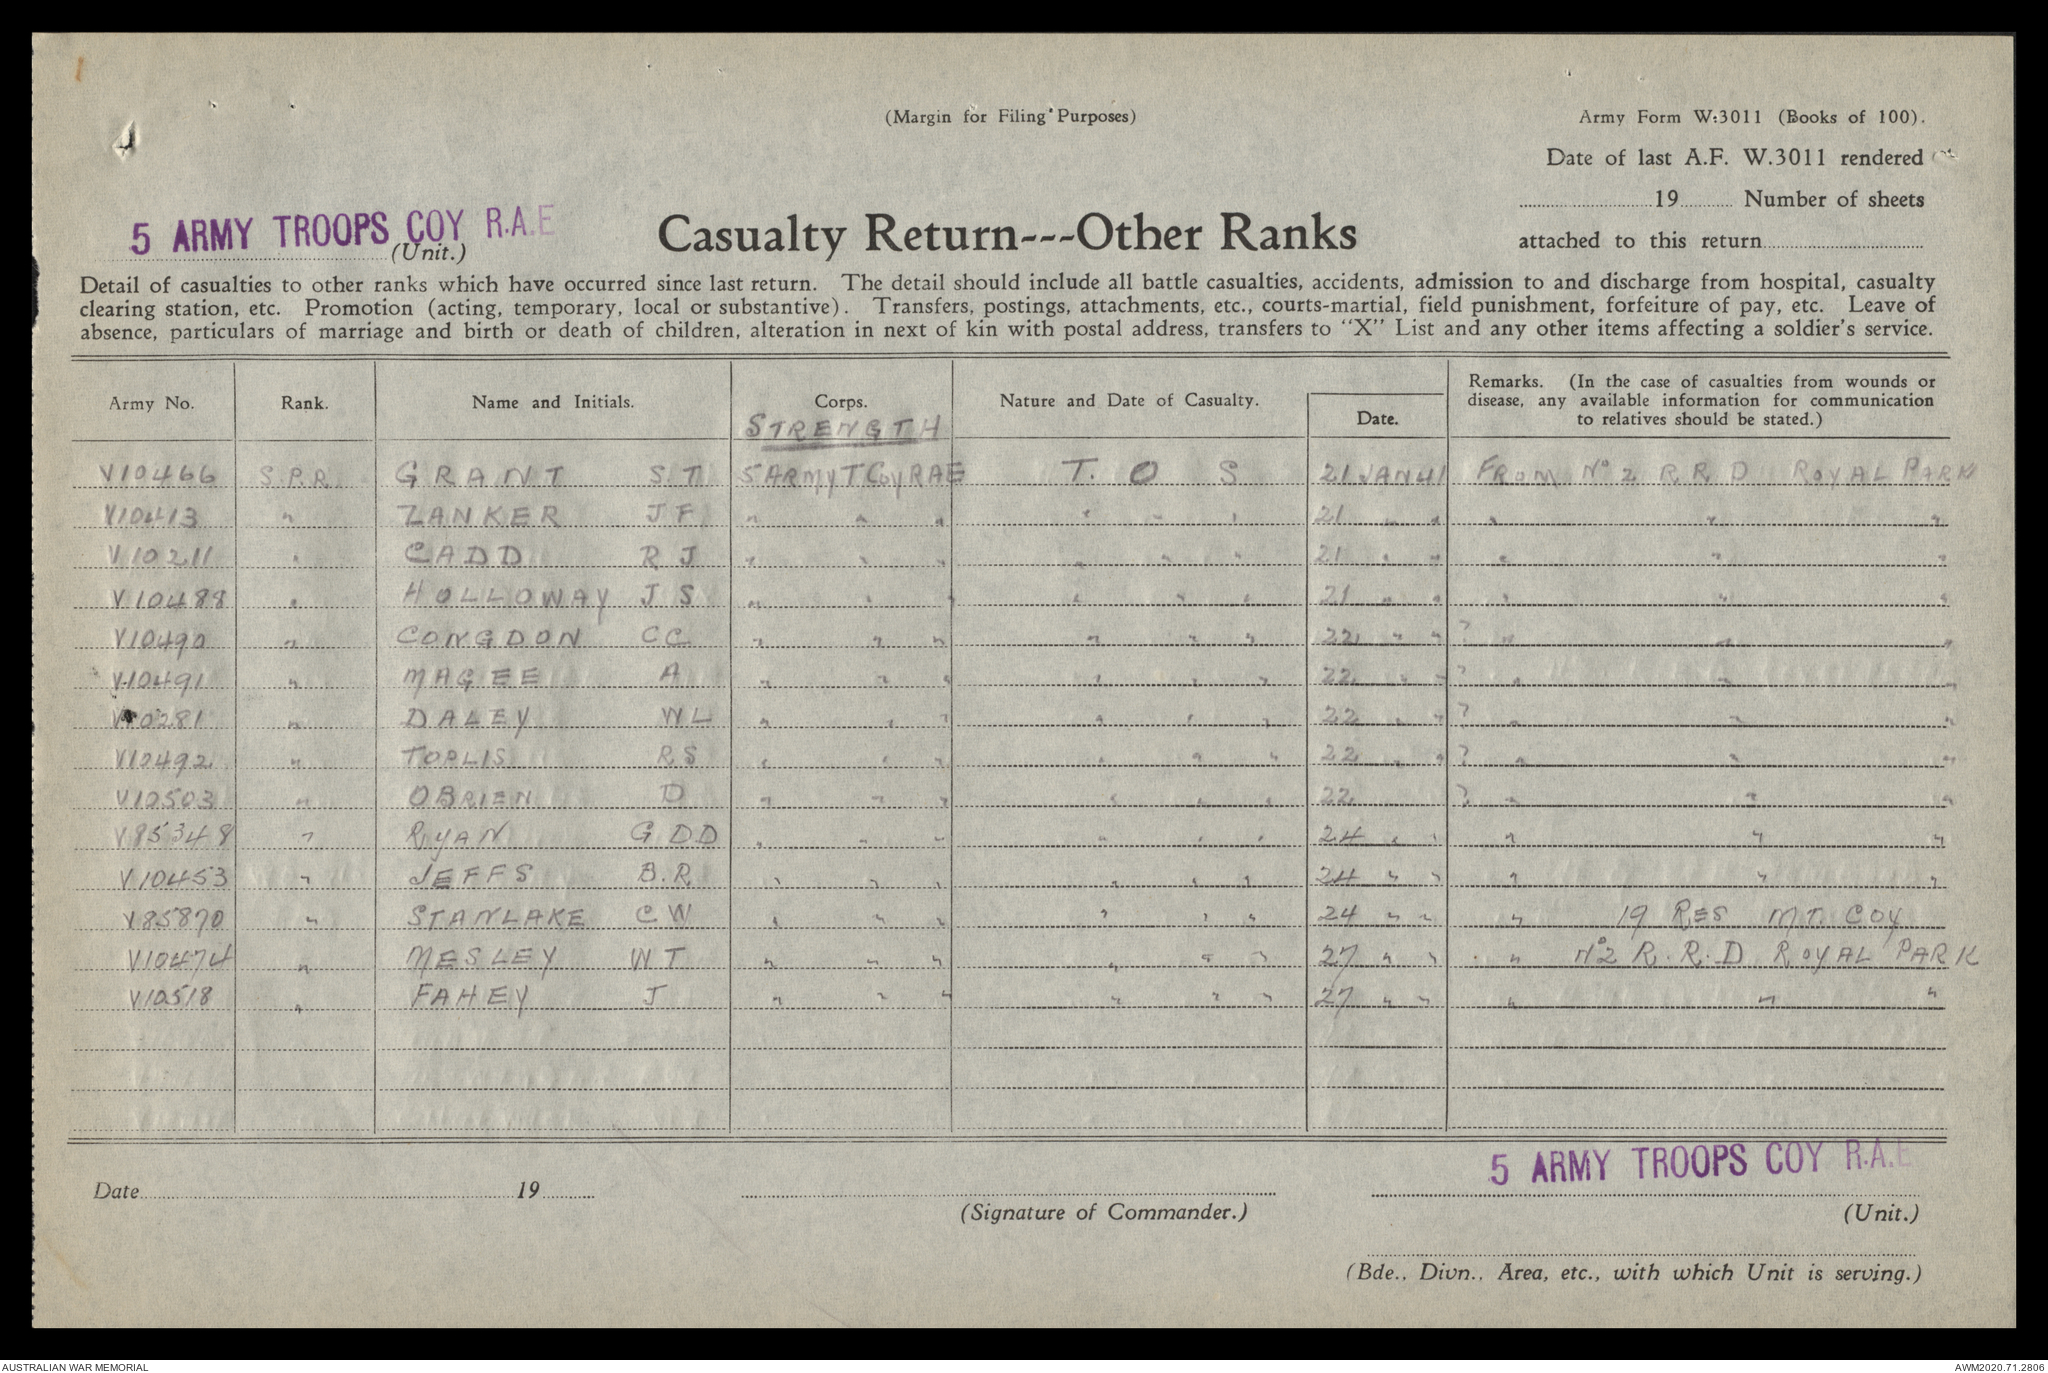 (Margin for Filing Purposes)
Army Form W.3011 (Books of 100).
Date of last A.F. W.3011 rendered
19 Number of sheets
attached to this return
5 ARMY TROOPS COY R.A.E
(Unit.)
Casualty Return---Other Ranks
Detail of casualties to other ranks which have occurred since last return. The detail should include all battle casualties, accidents, admission to and discharge from hospital, casualty
clearing station, etc. Promotion (acting, temporary, local or substantive). Transfers, postings, attachments, etc., courts-martial, field punishment, forfeiture of pay, etc. Leave of
absence, particulars of marriage and birth or death of children, alteration in next of kin with postal address, transfers to "X" List and any other items affecting a soldier's service.
Army No. Rank. Name and Initials. Corps. Nature and Date of Casualty. Date. Remarks. (In the case of casualties from wounds or
disease, any available information for communication
to relatives should be stated.)
STRENGTH
V10466 S.P.R GRANT S.T 5 ARMY T Coy RAE T. O S 21 JAN 41 FROM No 2 R R D ROYAL PARK
V10413 " ZANKER J F " " " " " " 21 " " " " "
V10211 " CADD R J " " " " " " 21 " " " " "
V10488 " HOLLOWAY J S " " " " " " 21 " " " " "
V10490 " CONGDON C C " " " " " " 22 " " ? " " "
V10491 " MAGEE A " " " " " " 22 " " ? " " "
V10281 " DALEY W L " " " " " " 22 " " ? " " "
V10492 " TOPLIS R S " " " " " " 22 " " ? " " "
V10503 " OBRIEN D " " " " " " 22 ? " " "
V85348 " RYAN G D D " " " " " " 24 " " " " "
V10453 " JEFFS B.R " " " " " " 24 " " " " "
V85870 " STANLAKE C W " " " " " " 24 " " " 19 RES MT. COY
V10474 " MESLEY W T " " " " " " 27 " " " No2 R.R.D ROYAL PARK
V10518 " FAHEY J " " " " " " 27 " " " " "
5 ARMY TROOPS COY R.A.E
Date 19
(Signature of Commander.)
(Unit.)
(Bde., Divn., Area, etc., with which Unit is serving.)
AUSTRALIAN WAR MEMORIAL
AWM2020.71.2806